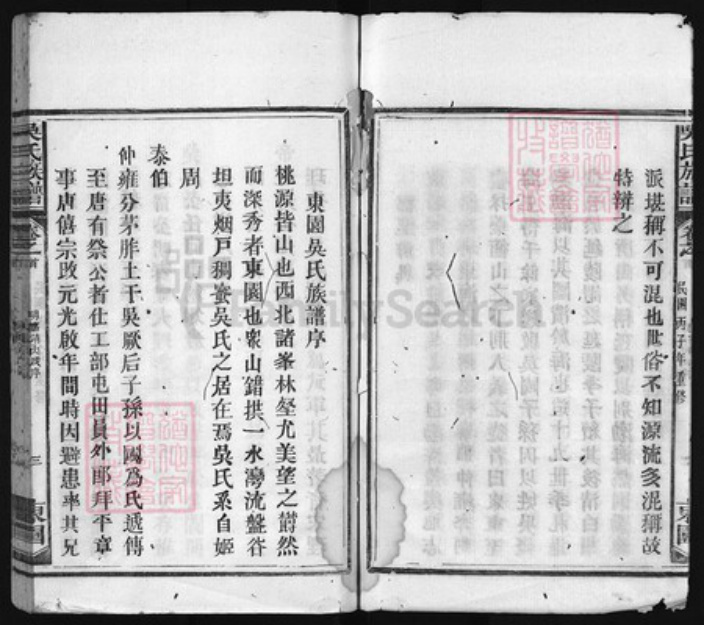 派堪稱不可混也世俗不知源流多混稱故
特辨之
吳氏族譜
卷之
民國丙子年重修
東園
東園吳氏族譜序
桃源皆山也西北諸峯林壑尤美望之蔚然
而深秀者東園也衆山錯拱一水灣流盤谷
坦夷烟戶稠蜜吳氏之居在焉吳氏系自姬
周
泰伯
仲雍分茅胙土于吳厥后子孫以國爲氏遞傳
至唐有祭公者仕工部屯田員外郎拜平章
事唐僖宗改元光啟年間時因避患率其兄
吳氏族譜
卷之首
三
東園
FamilySearch